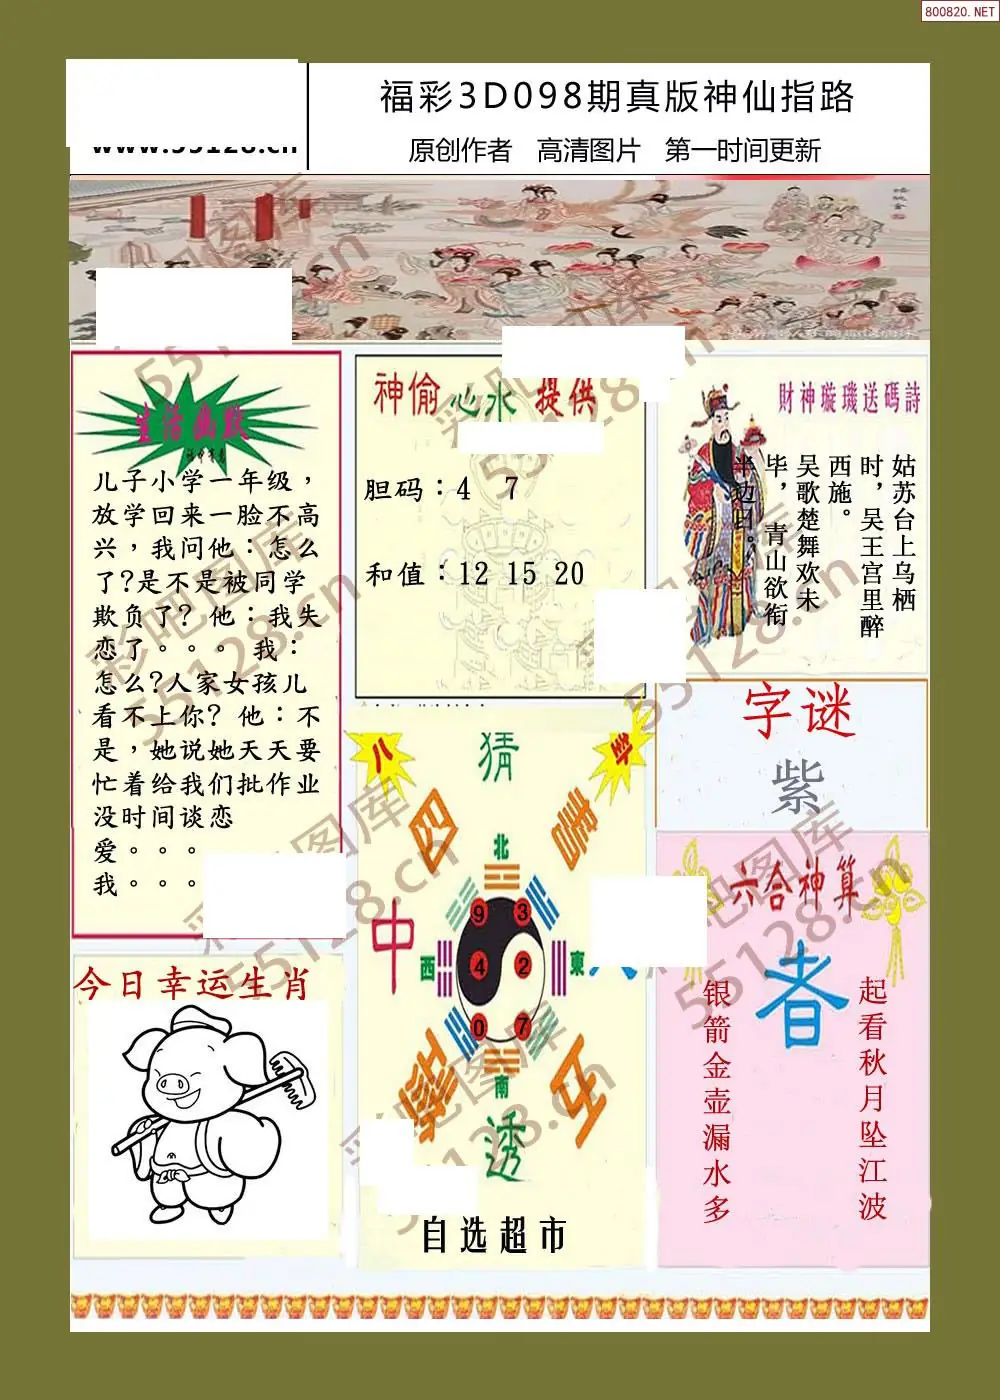 800820.NET
福彩3D098期真版神仙指路
www.55128.cn
原创作者 高清图片 第一时间更新
生活幽默
儿子小学一年级，
放学回来一脸不高
兴，我问他：怎么
了?是不是被同学
欺负了? 他：我失
恋了。。。 我：
怎么?人家女孩儿
看不上你? 他：不
是，她说她天天要
忙着给我们批作业
没时间谈恋
爱。。。
我。。。
神偷 心水 提供
胆码：4 7
和值：12 15 20
財神璇璣送碼詩
姑苏台上乌栖
时，吴王宫里醉
西施。
吴歌楚舞欢未
毕，青山欲衔
半边日。
字谜
紫
八
卦
猜
四
中
北
西
東
南
9
3
4
2
0
7
五
透
自选超市
六合神算
者
起看秋月坠江波
银箭金壶漏水多
今日幸运生肖
彩吧图库
55128.cn